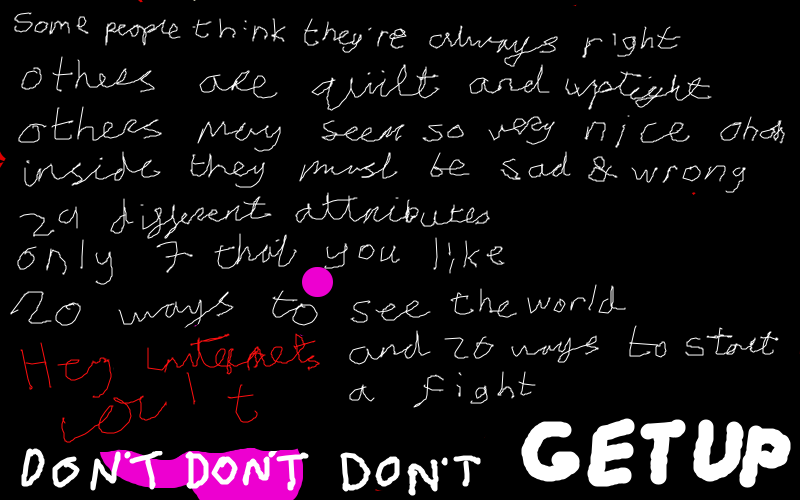 Some people think they're always right
others are quiit and uptight
others may seem so very nice ohoh
inside they must be sad & wrong
29 different attributes
only 7 that you like
20 ways to see the world
and 20 ways to start
a fight
Hey
DON'T DON'T DON'T GET UP